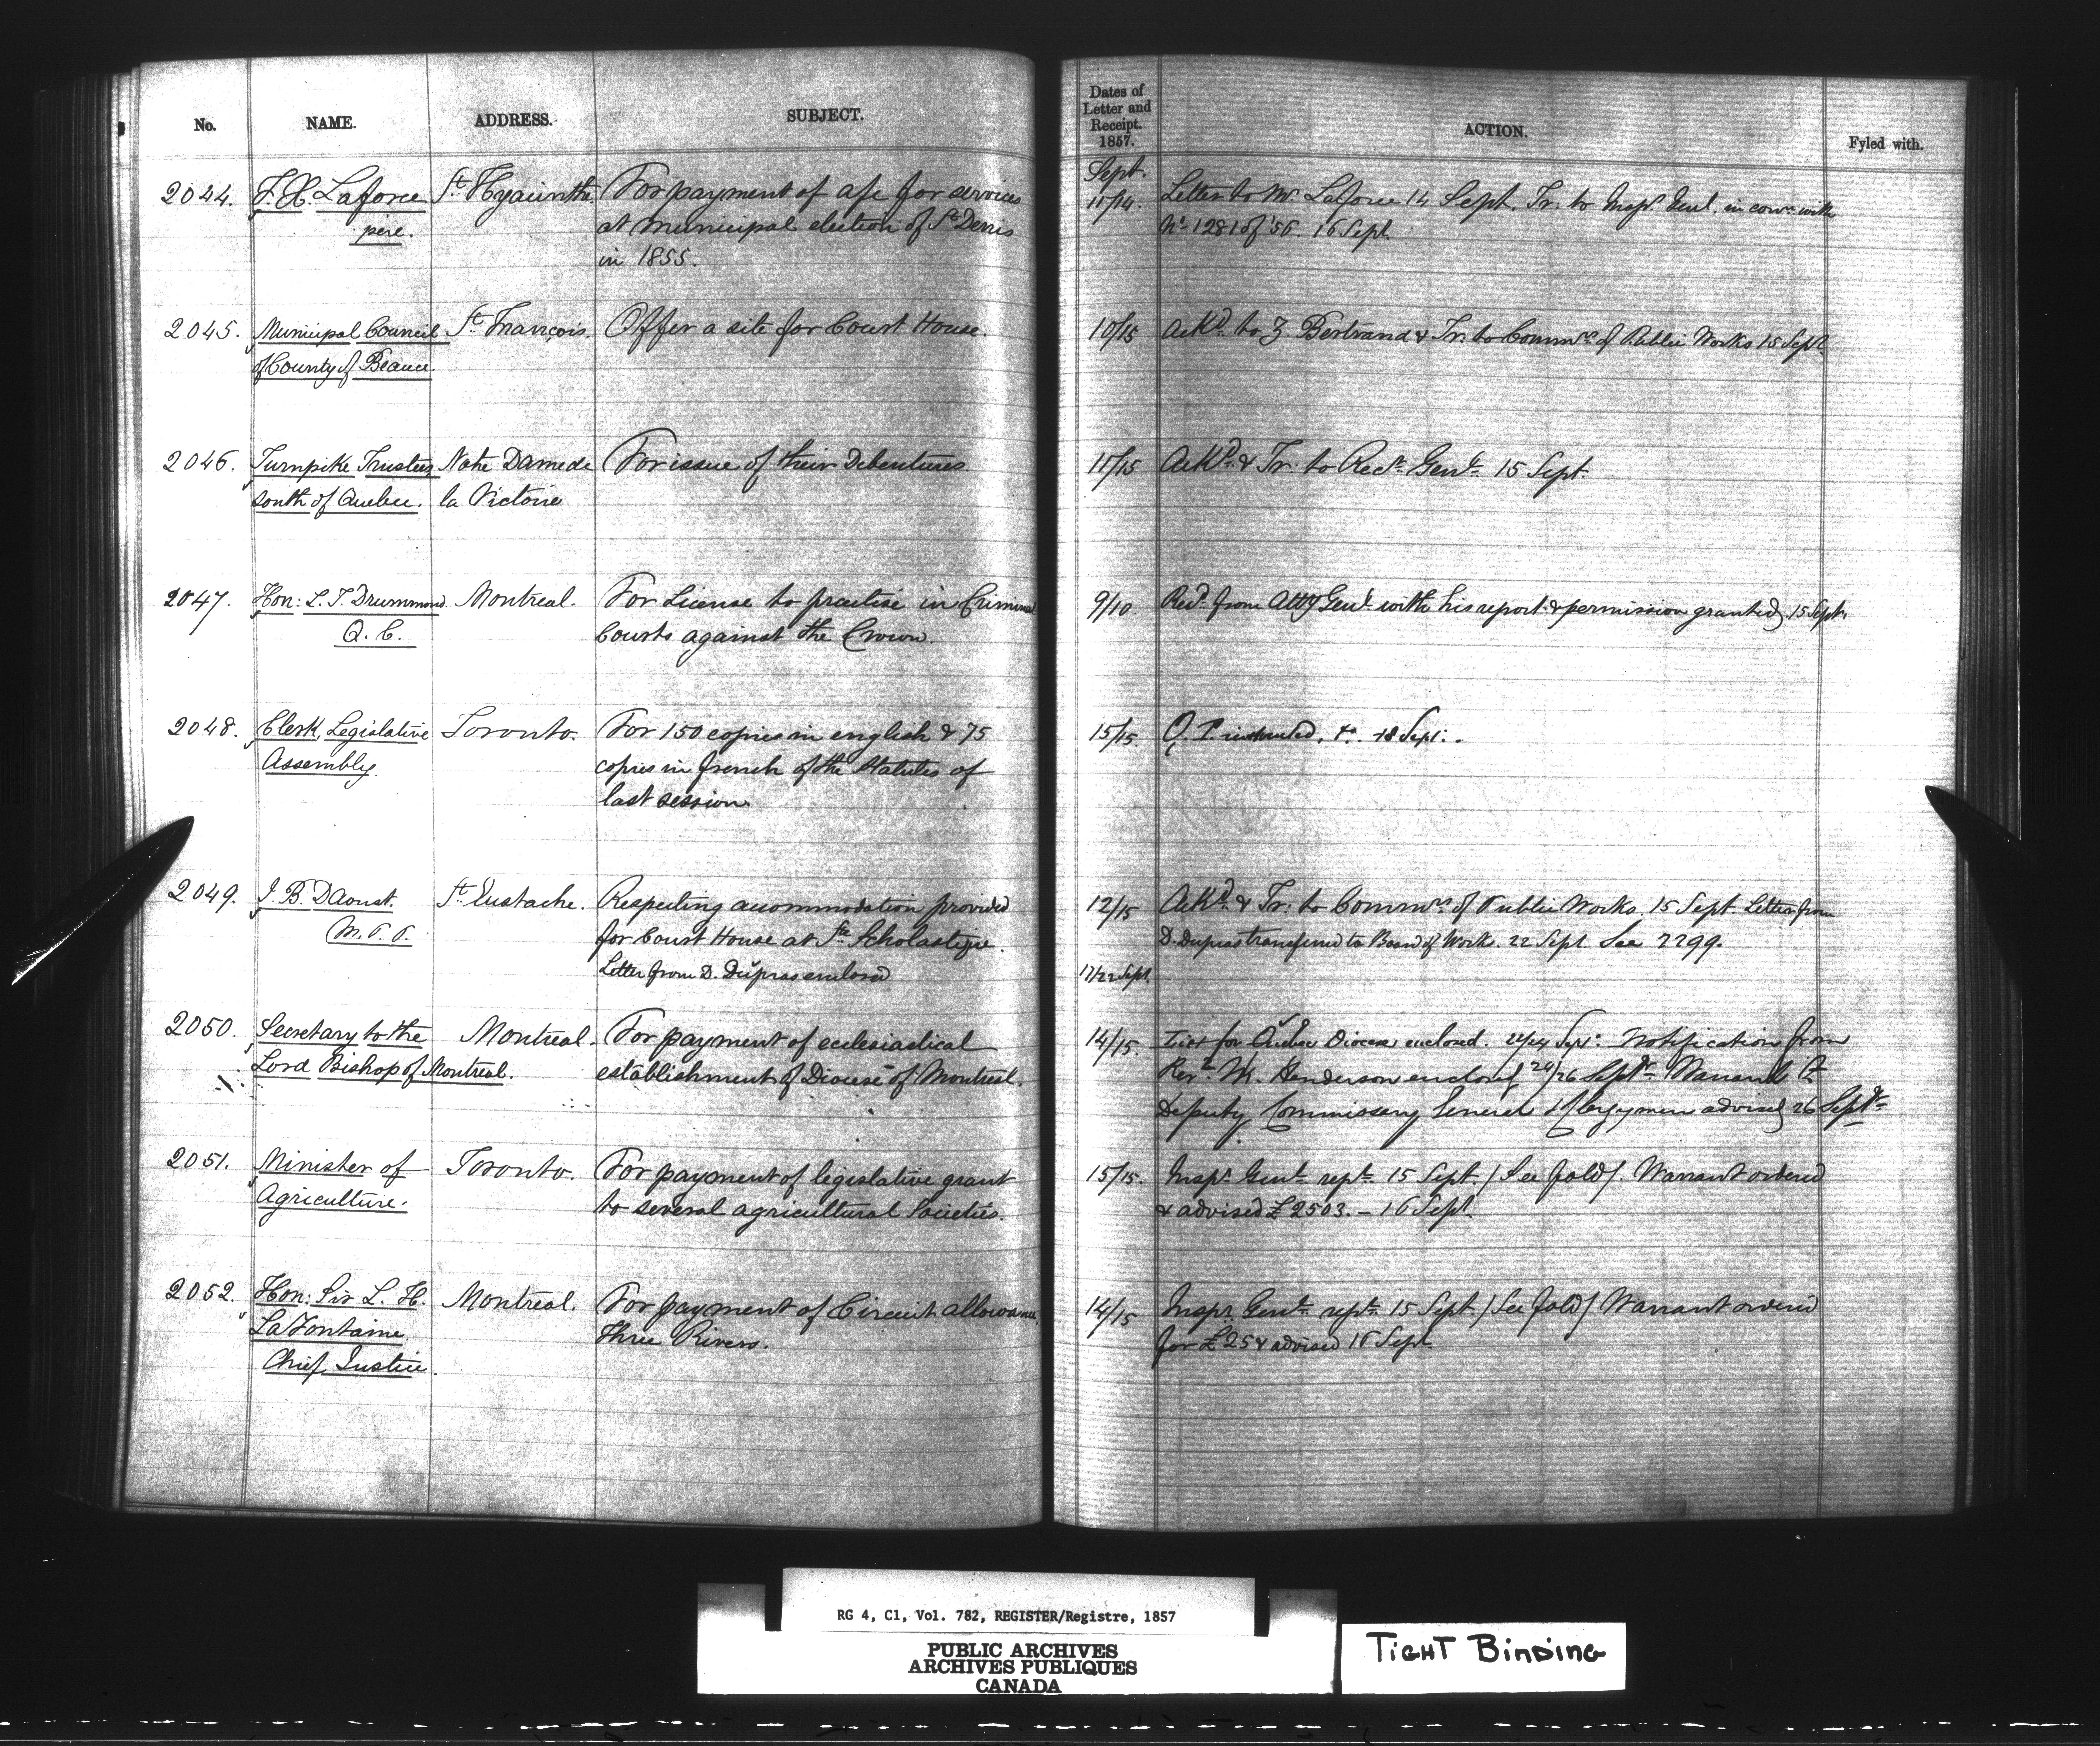 No. NAME. ADDRESS. SUBJECT.
Dates of Letter and Receipt. 1857. ACTION. Fyled with.
Sept.
2044. F. X. Laforce St. Hyacinthe. For payment of a/c for services 11/14. Letter to Mr. Laforce 14 Sept. Tr. to Inspr. Genl. in conn. with
père. at municipal election of St. Denis No. 1281 of '56. 16 Sept.
in 1855.
2045. Municipal Council St. François. Offer a site for Court House. 10/15 Ackd. to Z Bertrand & Tr. to Commrs. of Public Works 15 Sept.
of County of Beauce.
2046. Turnpike Trustees Notre Dame de For issue of their Debentures 11/15 Ackd. & Tr. to Recr. Genl. 15 Sept.
south of Quebec. la Victoire
2047. Hon: L. T. Drummond Montreal. For License to practise in Criminal 9/10 Recd. from Atty Genl. with his report & permission granted 15 Sept.
Q. C. Courts against the Crown.
2048. Clerk, Legislative Toronto. For 150 copies in english & 75 15/15. Q. P. instructed. 18 Sept.
Assembly. copies in french of the Statutes of
last session.
2049. J. B. Daoust St. Eustache. Respecting accommodation provided 12/15 Ackd. & Tr. to Commrs. of Public Works. 15 Sept. Letter from
M. P. P. for Court House at Ste. Scholastique. D. Dupras transferred to Board of Work. 22 Sept. See 2299.
Letter from D. Dupras enclosed 17/22 Sept.
2050. Secretary to the Montreal. For payment of ecclesiastical 14/15. for Quebec Diocese enclosed. 22/24 Sept. Notification from
Lord Bishop of Montreal. establishment of Diocese of Montreal. Revd. W. Henderson enclosed 24/26 Septr. Warrant
Deputy Commissary General & Clergymen advised 26 Septr.
2051. Minister of Toronto. For payment of legislative grant 15/15. Inspr. Genls. rept. 15 Sept. / See fold /. Warrant ordered
Agriculture. to several agricultural Societies. & advised £2503. – 16 Sept.
2052. Hon: Sir L. H. Montreal. For payment of Circuit allowance, 14/15 Inspr. Genls. rept. 15 Sept. / See fold / Warrant ordered
LaFontaine Three Rivers. for £25 & advised 16 Sept.
Chief Justice.
RG 4, C1, Vol. 782, REGISTER/Registre, 1857
PUBLIC ARCHIVES
ARCHIVES PUBLIQUES
CANADA
TIGHT BINDING